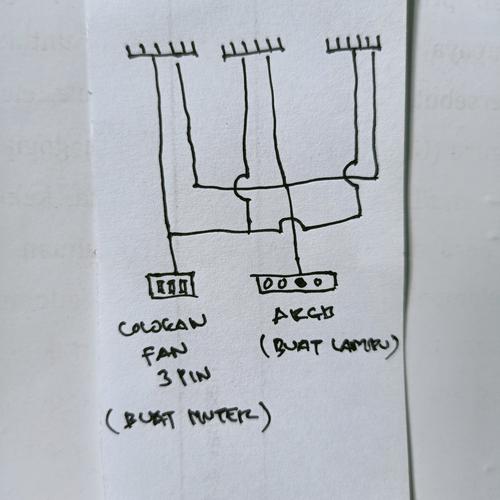 COLOKAN
FAN
3 PIN
(BUAT MUTER)
ARGB
(BUAT LAMPU)